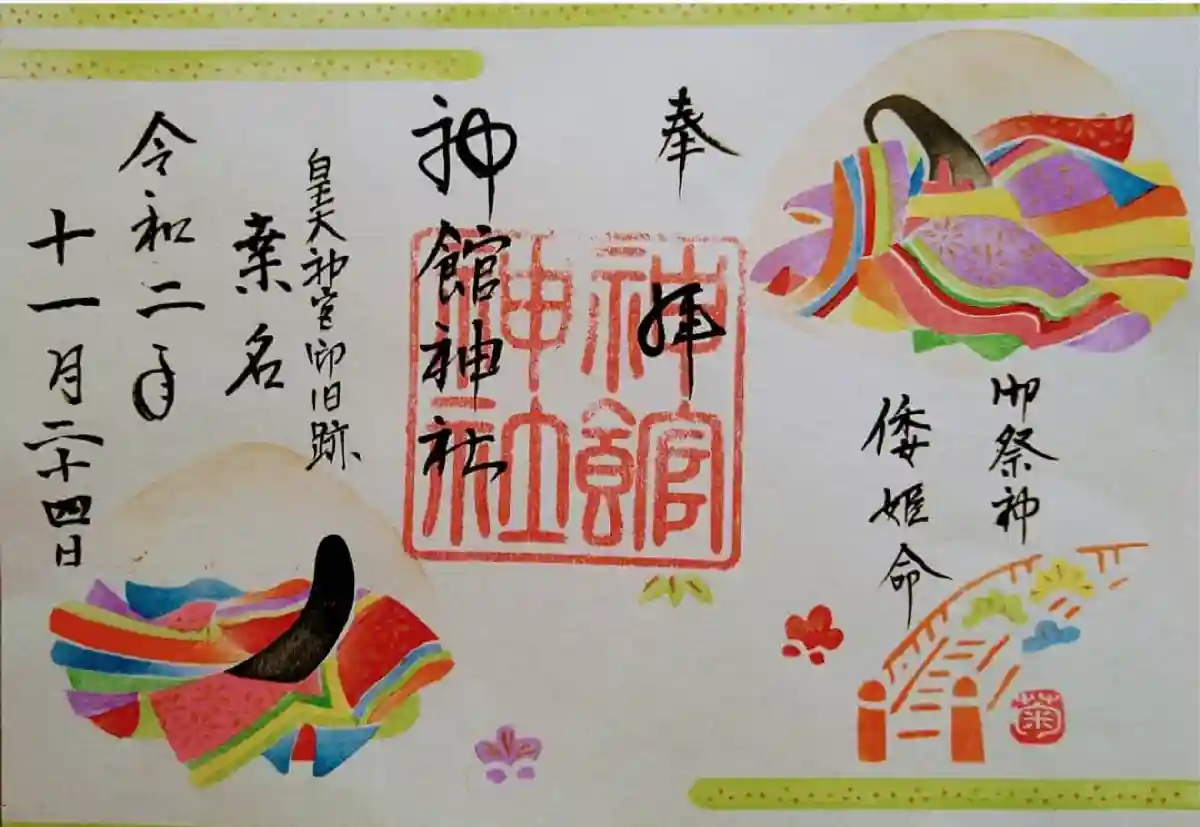 御祭神
倭姫命
奉拝
神館神社
神館
神社
皇大神宮御旧跡
桑名
令和二年
十一月二十四日
菊